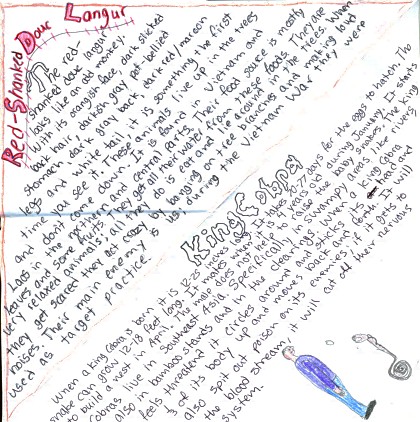 Red-Shanked Dour Langur
The red-
shanked dour langur
looks like an old monkey.
With its orangish face, dark slicked
back hair, darkish gray pot-bellied
stomach, dark gray back, dark red/maroon
legs and white tail, it is something the first
time you see it. These animals live up in the trees
and don't come down. It is found in Vietnam and
Laos in the southern and central parts. Their food source is mostly
leaves and some fruits. They get all their water from these foods. They are
very relaxed animals; all they do is eat and lie around in the trees. When
they get scared they act crazy by banging on tree branches and making loud
noises. Their main enemy is us; during the Vietnam War they were
used as target practice.
King Cobra
When a King Cobra is born it is 12-25 inches
snake can grow 12-18 feet long. It makes
to build a nest in April. The male does not help to raise the baby snakes. The King
cobras live in Southeast Asia. Specifically in swampy areas like rivers,
also in bamboo stands and in the clearings. When a King Cobra
feels threatened it circles around and sticks its head and
⅓ of its body up and moves back and forth. It will
also spit out poison on its enemies if it gets to
the blood stream, it will cut off their nervous
system.